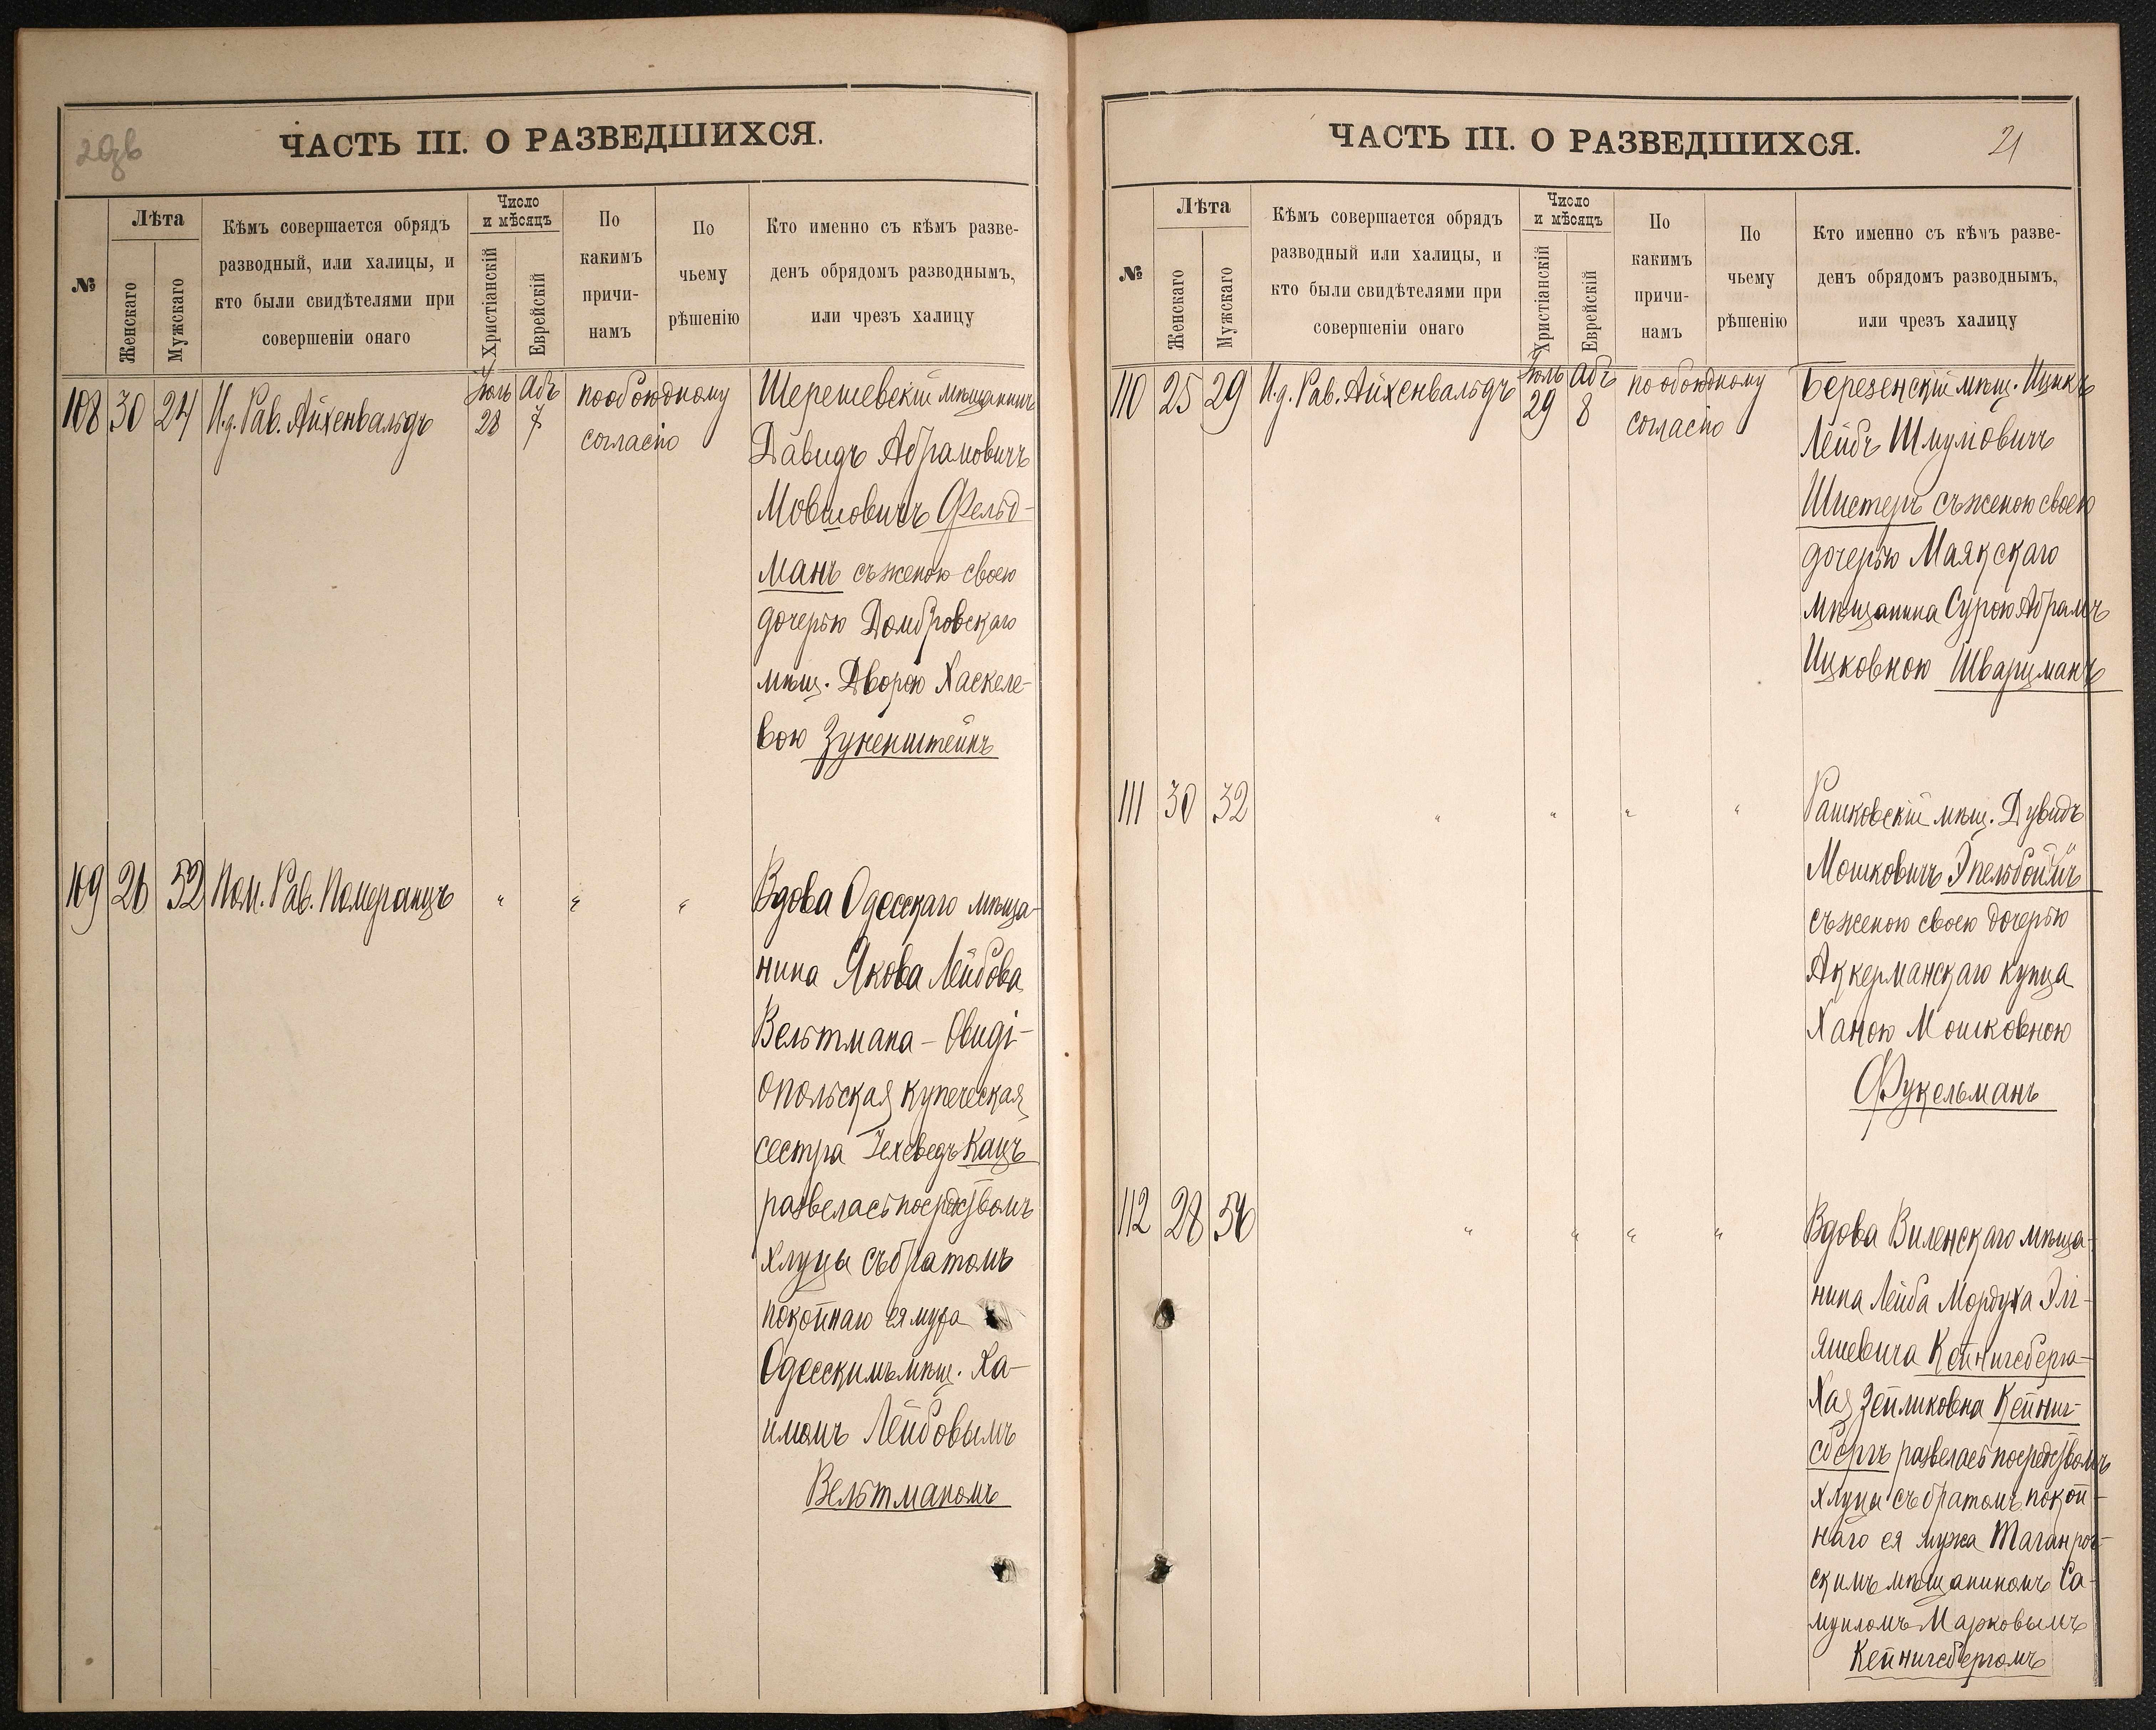 20об
ЧАСТЬ III. О РАЗВЕДШИХСЯ.
№
Лѣта
Женскаго
Мужскаго
Кѣмъ совершается обрядъ
разводный, или халицы, и
кто были свидѣтелями при
совершеніи онаго
Число
и мѣсяцъ
Христіанскій
Еврейскій
По
какимъ
причи-
намъ
По
чьему
рѣшенію
Кто именно съ кѣмъ разве-
денъ обрядомъ разводнымъ,
или чрезъ халицу
108 30 24 И.д. Рав. Айхенвальдъ
Іюль 28
Абъ 7
по обоюдному
согласію
Шерешевскій мѣщанинъ
Давидъ Абрамовичъ
Мовшовичъ Фельд-
манъ съ женою своею
дочерью Домбровскаго
мѣщ. Дворою Хаскеле-
вою Зуненштейнъ
109 26 52 Пом. Рав. Померанцъ
" " "
Вдова Одесскаго мѣща-
нина Якова Лейбова
Вельтмана - Овиді-
опольская купеческая
сестра Іехеведъ Кацъ
развелась посредствомъ
хлуцы съ братомъ
покойнаго ея мужа
Одесскимъ мѣщ. Ха-
имомъ Лейбовымъ
Вельтманомъ
ЧАСТЬ III. О РАЗВЕДШИХСЯ.
21
№
Лѣта
Женскаго
Мужскаго
Кѣмъ совершается обрядъ
разводный или халицы, и
кто были свидѣтелями при
совершеніи онаго
Число
и мѣсяцъ
Христіанскій
Еврейскій
По
какимъ
причи-
намъ
По
чьему
рѣшенію
Кто именно съ кѣмъ разве-
денъ обрядомъ разводнымъ,
или чрезъ халицу
110 25 29 И.д. Рав. Айхенвальдъ
Іюль 29
Абъ 8
по обоюдному
согласію
Березенскій мѣщ. Ицикъ
Лейбъ Шмулiовичъ
Шистеръ съ женою своею
дочерью Маякскаго
мѣщанина Сурою Абрамъ
Ицковною Шварцманъ
111 30 32
" " " "
Рашковскій мѣщ. Дувидъ
Мошковичъ Эпельбоймъ
съ женою своею дочерью
Аккерманскаго купца
Ханою Мошковною
Фукельманъ
112 28 56
" " " "
Вдова Виленскаго мѣща-
нина Лейба Мордуха Элі-
яшевича Кейнигсберга-
Хая Зейликовна Кейниг-
сбергъ развелась посредствомъ
хлуцы съ братомъ покой-
наго ея мужа Таганрог-
скимъ мѣщаниномъ Са-
муиломъ Марковымъ
Кейнигсбергомъ